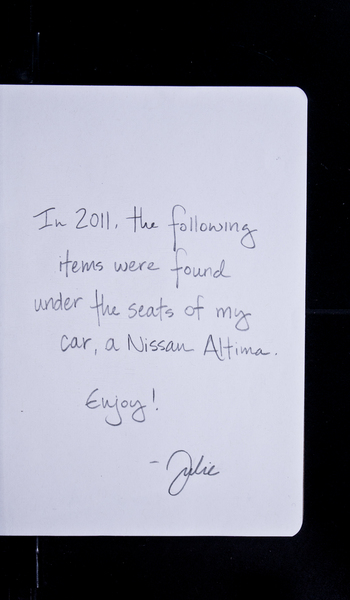 In 2011, the following
items were found
under the seats of my
car, a Nissan Altima.
Enjoy!
- Julie